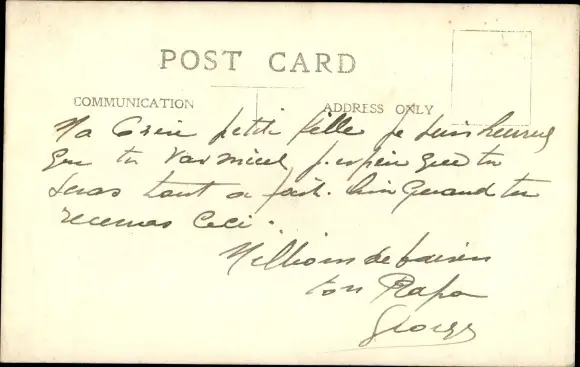 POST CARD
COMMUNICATION
ADDRESS ONLY
Ma petite fille je suis heureux
que tu vas mieux j'espère que tu
seras tout a fait bien quand tu
recevras ceci.
Millions de baisers
ton Papa
Georges